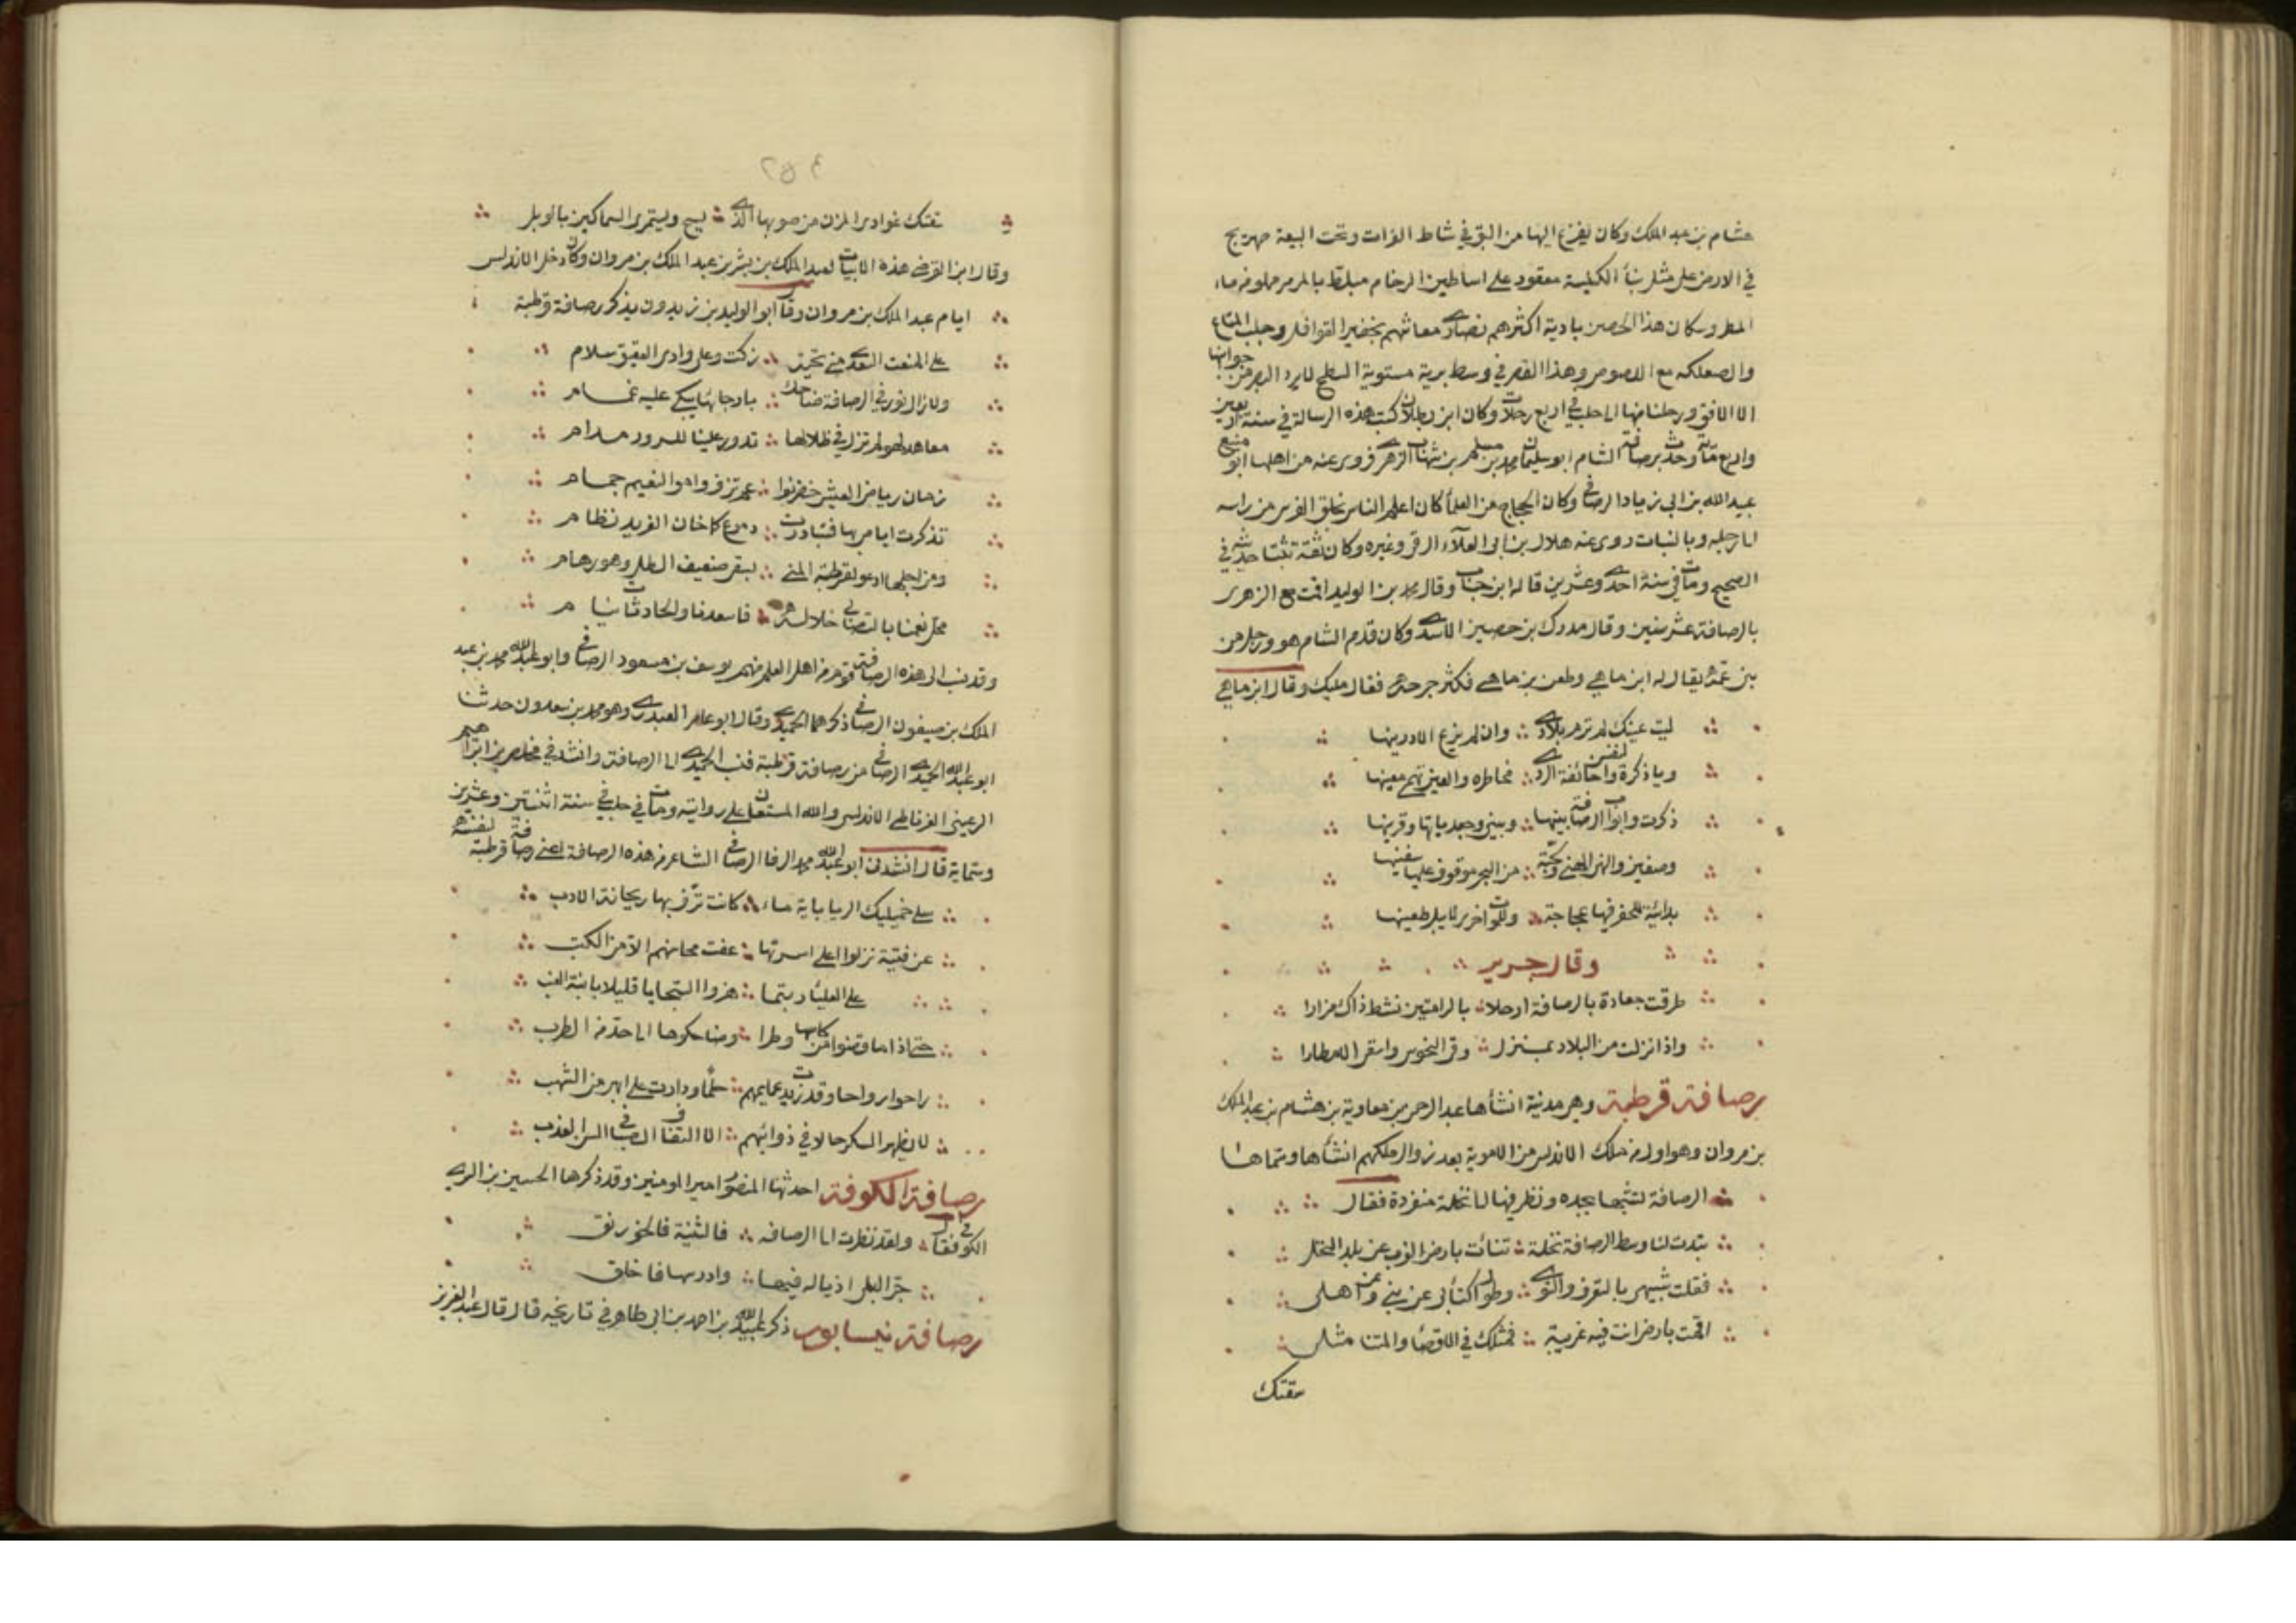 هشام بن عبد الملك وكان يفزع اليها من البق في شاط الفرات وتحت البيعة صهريج
في الارض على مثل بنأ الكنيسة معقود على اساطين الرخام مبلط بالمرمر مملو من ماء
المطر وسكان هذا الحصن بادية اكثرهم نصارى معاشهم بخفير القوافل وجلب المتاع
والصعلكه مع اللصوص وهذا القصر في وسط برية مستوية السطح لا يرد البصر من جوانبها
الا الافق ورحلنا منها الى حلب في اربع رحلات وكان ابن بطلان كتب هذه الرسالة في سنة اربعين
واربع مائة وحدث برصافة الشام ابو سليمان محمد بن مسلم بن شهاب الزهري فروى عنه من اهلها ابو منيع
عبيد الله بن ابي زياد الرصافي وكان الحجاج من العلمأ كان اعلم الناس بخلق الفرس من راسه
الى رجله وبالنبات روى عنه هلال بن ابي العلآء الرقي وغيره وكان ثقة ثبتا حديثه في
الصحيح ومات في سنة احدى وعشرين قاله ابن حبان وقال محمد بن الوليد اقمت مع الزهري
بالرصافة عشر سنين وقال مدرك بن حصين الاسدي وكان قدم الشام هو ورجل من
بني عمه يقال له ابن ماهي وطعن بن ماهي فكثر جرحه فقال
ليت عينك لم ترم بلادي ؞ وان لم يزع الا درينها
وياذكرة والنفس خائفة الردى ؞ مخاطره والعين تهم معينها
ذكرت وابواب الرصافة بينها ؞ وبيني وجعدياتها وقرينها
وصفين والنهر الهني ولجة ؞ من البحر موقوف عليها سفينها
بدائية للحفر فيها عجاجة ؞ وللموت اخرى لا يبل طعينها
وقال جرير
طرقت جعادة بالرصافة ارحلا ؞ بالرامتين نشط ذاك مزارا
واذا نزلت من البلاد بمنزل ؞ وقي النحوس واسقي الامطارا
رصافة قرطبة وهي مدينة انشأها عبد الرحمن بن معاوية بن هشام بن عبد الملك
بن مروان وهو اول من ملك الاندلس من الاموية بعد زوال ملكهم انشأها وسماها
الرصافة لتشبها بجده ونظر فيها الى نخلة منفردة فقال
تبدت لنا وسط الرصافة نخلة ؞ تنائت بارض الغرب عن بلد النخل
فقلت شبيهي بالتغرب والنوى ؞ وطول اكتئابي عن بني وعن اهلي
اقمت بارض انت فيه غريبة ؞ فمثلك في الاقصا والمتنا مثلي
سقتك
٢٥٤
سقتك غوادى المزن من صوبها الذي ؞ يسح ويستمرى السماكين بالوبل
وقال ابن الفرضي هذه الابيات لعبد الملك بن بشر بن عبد الملك بن مروان وكان دخل الاندلس
ايام عبد الملك بن مروان وقال ابو الوليد بن زيدون يذكر رصافة قرطبة
على المنعت السعدي مني تحية ؞ زكت وعلى وادى العقيق سلام
ولا زال نور في الرصافة ضاحك ؞ بارجائها يبكي عليه غمام
معاهد لهو لم تزل في ظلالها ؞ تدور علينا للسرور مدام
زمان رياض العيش خضر نوا ؞ عم ترف وامواه النعيم جمام
تذكرت ايامي بها فتبادرت ؞ دموع كما خان الفريد نظام
ومن اجلها ادعو لقرطبة المنى ؞ بسقي ضعيف الطل وهو رهام
محل نعمنا بالتصابي خلاله ؞ فاسعدنا والحادثات نيام
وقد نسب الى هذه الرصافة قوم من اهل العلم منهم يوسف بن مسعود الرصافي وابو عبد الله محمد بن عبد
الملك بن صيفون الرصافي ذكرهما الحميدي وقال ابو عامر العبدري وهو محمد بن سعدون حدثنا
ابو عبد الله الحميدي الرصافي من رصافة قرطبة فنسب الحميدي الى الرصافة وانشدني مخلص بن ابراهيم
الرعيني الغرناطي الاندلسي والله المستعان على روايته ومات في حلب في سنة اثنتين وعشرين
وستماية قال انشدني ابو عبد الله محمد الرفا الرصافي الشاعر من هذه الرصافة اعني رصافة قرطبة لنفسه
سلي خميليك الريا باية ماء ؞ كانت ترف بها ريحانة الادب
عن فتية نزلوا اعلى اسرتها ؞ عفت محاسنهم الا من الكتب
؞ على العلياء ربتما ؞ هزوا السجايا قليلا بابنة العنب
حتى اذا ما قضوا من كاسها وطرا ؞ وضاحكوها الى حد من الطرب
راحوا رواحا وقد زيدت عمايمهم ؞ حلما ودارت على ابهى من الشهب
لا يظهر السكر حالا في ذوائبهم ؞ الا التفاف الصبا في السن العذب
رصافة الكوفة احدثها المنصور امير المومنين وقد ذكرها الحسين بن السري
الكوفي فقال ؞ ولقد نظرت الى الرصافه ؞ فالثنية فالخورنق
جر البلى اذياله فيها ؞ وادرسها فاخلق
رصافة نيسابور ذكر عبيد الله بن احمد بن ابي طاهر في تاريخه قال قال عبد العزيز